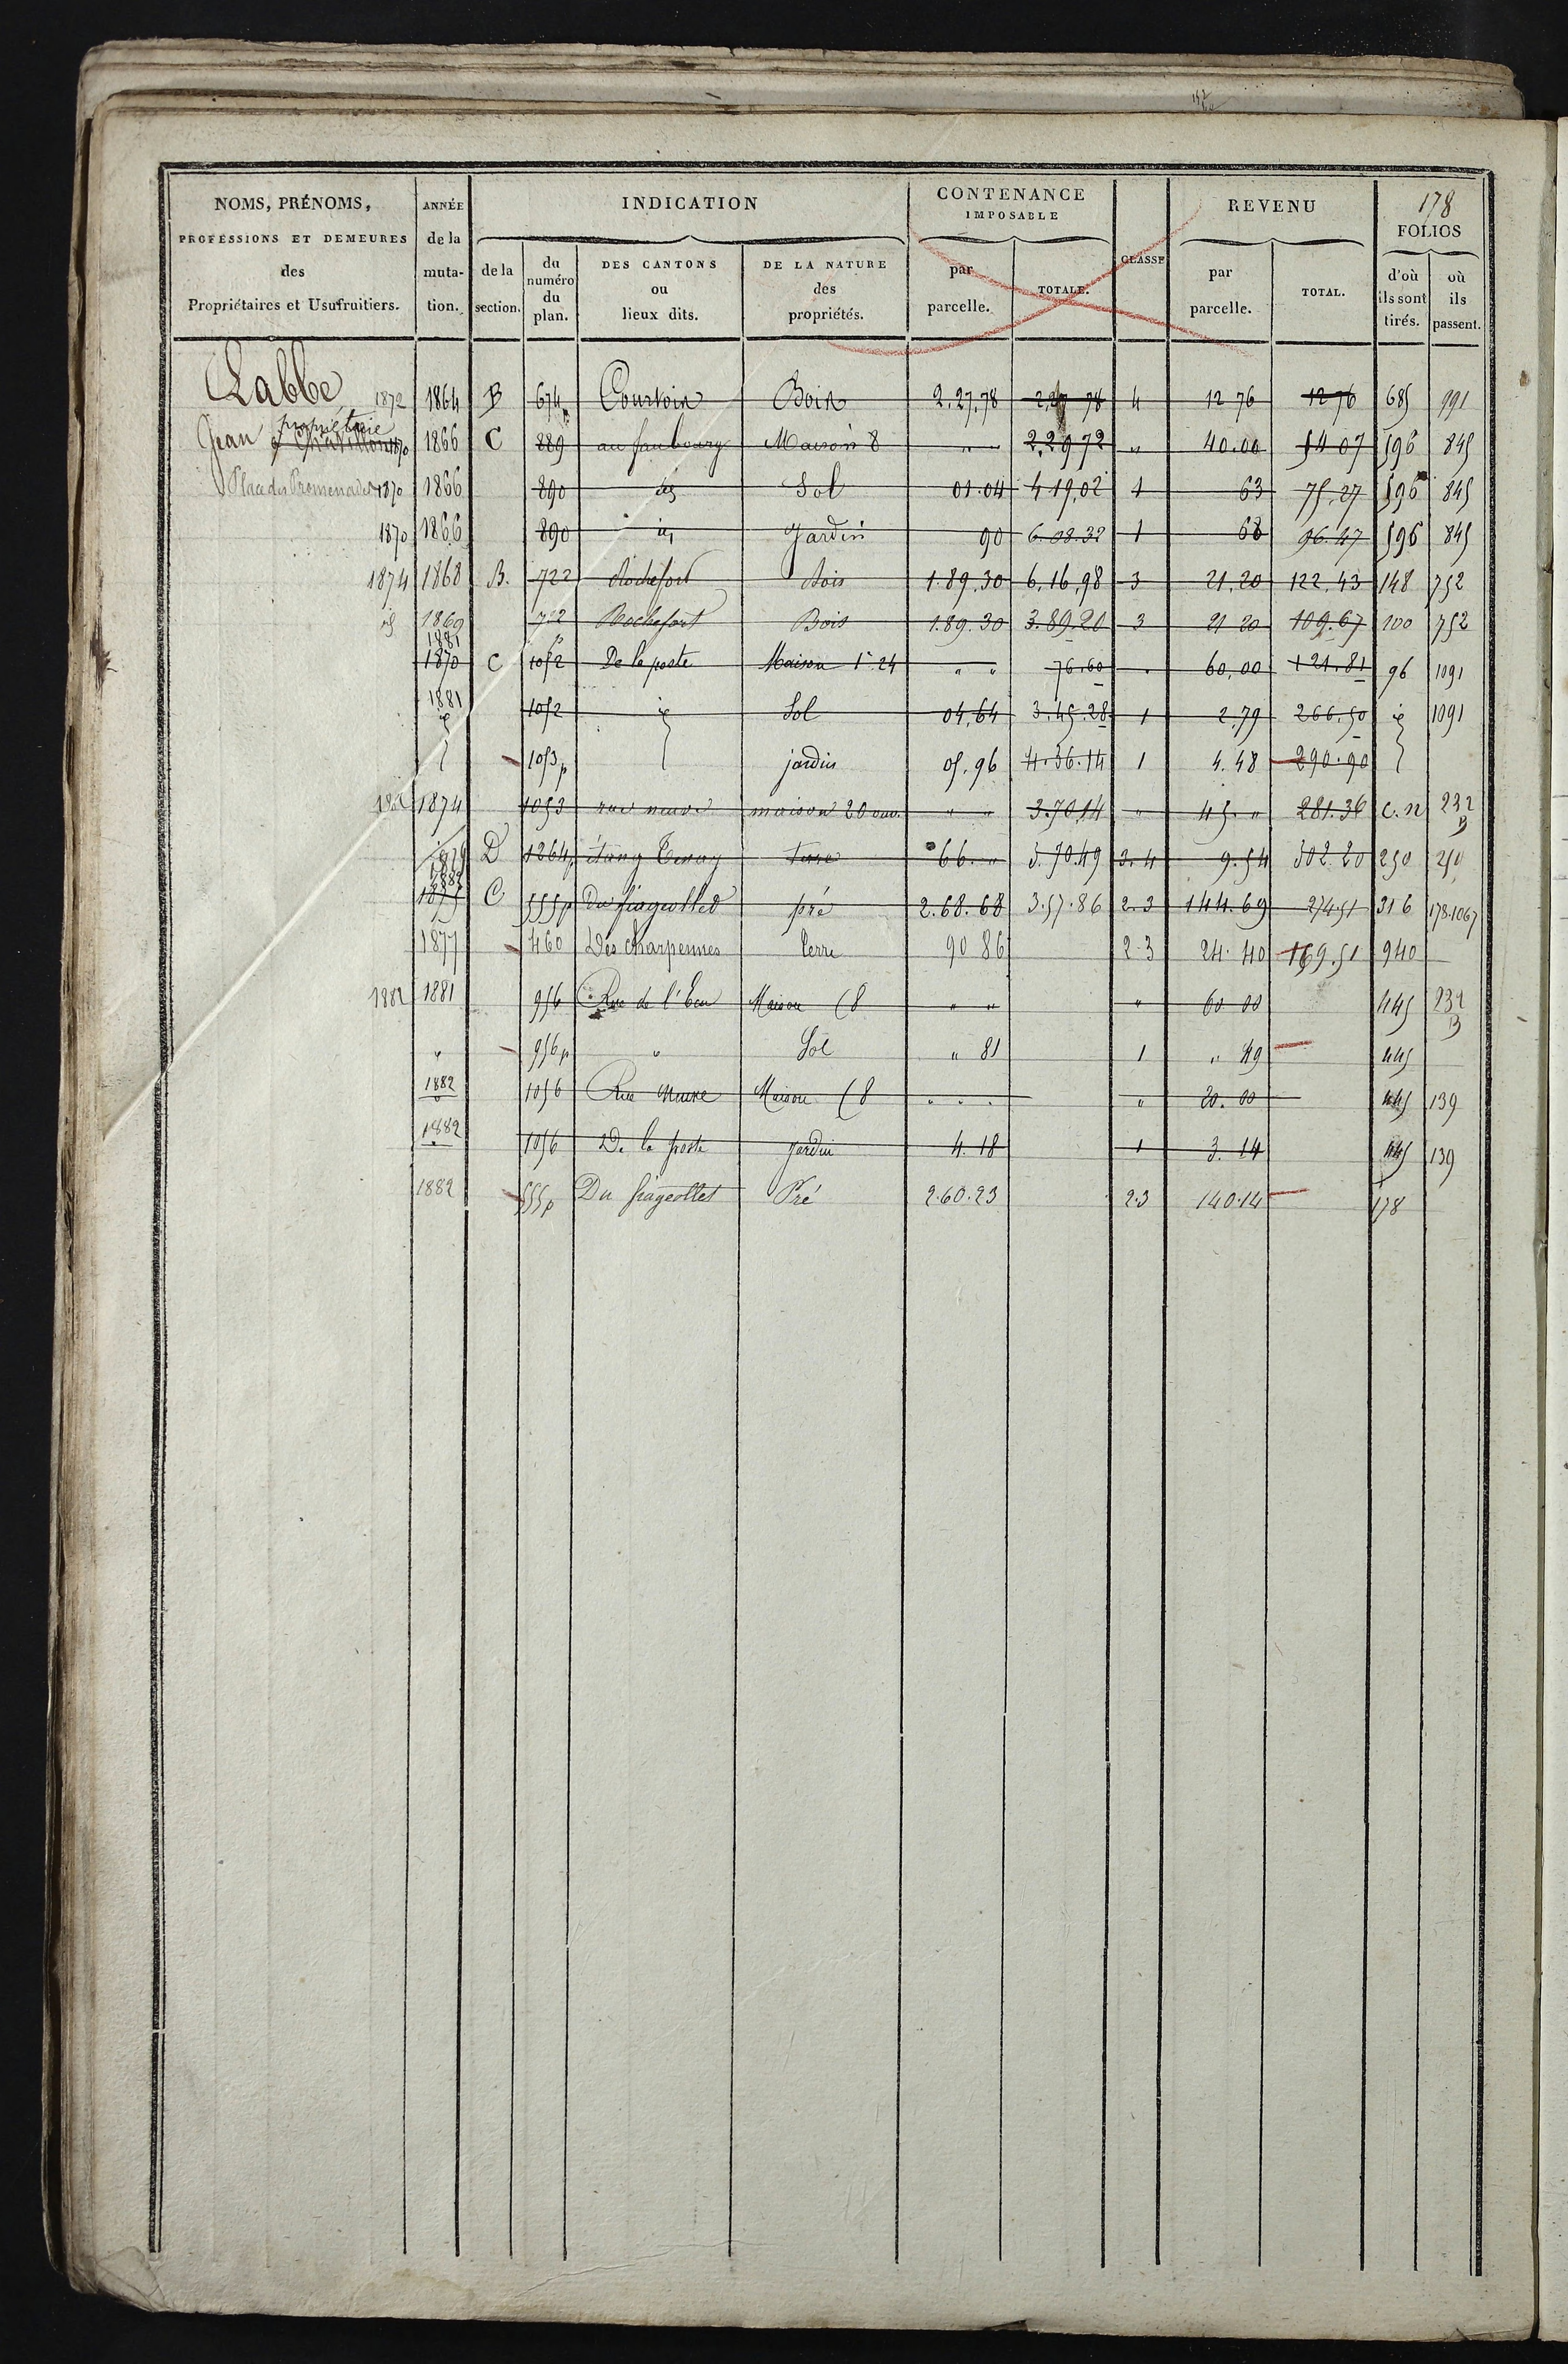 152
NOMS, PRÉNOMS, ANNÉE INDICATION CONTENANCE REVENU 178
IMPOSABLE FOLIOS
PROFESSIONS ET DEMEURES de la CLASSE
des muta- de la du numéro du plan. DES CANTONS ou lieux dits. DE LA NATURE des propriétés. par parcelle. TOTALE. par parcelle. TOTAL. d'où ils sont tirés. où ils passent.
Propriétaires et Usufruitiers. tion. section.
Labbe 1872 1864 B 674p Courtoix Bois 2.27.78 2.27 78 4 12 76 12 76 685 991
propriétaire
Jean à Chatillon 1870 1866 C 889 au faubourg Maison 8 " " 2.29 72 " 40.00 54 07 596 845
Place des Promenades 1870 1866 890 id Sol 01.04 4 19,02 1 63 75.27 596 845
1870 1866 890 id Jardin 90 6.08.32 1 68 96.47 596 845
1874 1868 B. 722 Rochefort Bois 1.89.30 6.16,98 3 21.20 122.43 148 752
id 1869 722 p Rochefort Bois 1.89.30 3.89.20 3 21 20 109.67 100 752
1881
1870 C 1052 De la poste Maison 1° 24 " " 76.60 " 60,00 121.81 96 1091
1881
id 1052 id Sol 04,64 3.45.28 1 2.79 266.50 id 1091
1053p jardin 05.96 4.36.14 1 4.48 290.90
1874 1053 rue neuve maison 20 ouv. " " 3.70,14 " 45. " 281.36 c.n 232 B
1879
D 1264p étang terre 66. " 5.70.49 3.4 9.54 302.20 250 250
1882
1875 C 555p Du fiageollet pré 2.68.68 3.57.86 2.3 144.69 274.51 316 178.1067
1877 460 Des Charpennes terre 90 86 2.3 24.40 169.51 940
1882 1881 956 Rue de l'Eau Maison (8 " " " 60.00 445 232 B
" 956p " Sol " 81 1 " 49 445
1882 1056 Rue Neuve Maison (8 " " " 20.00 445 139
1882 1056 De la poste jardin 4.18 1 3.14 445 139
1882 555p Du fiageollet Pré 2.60.23 2.3 140.14 178